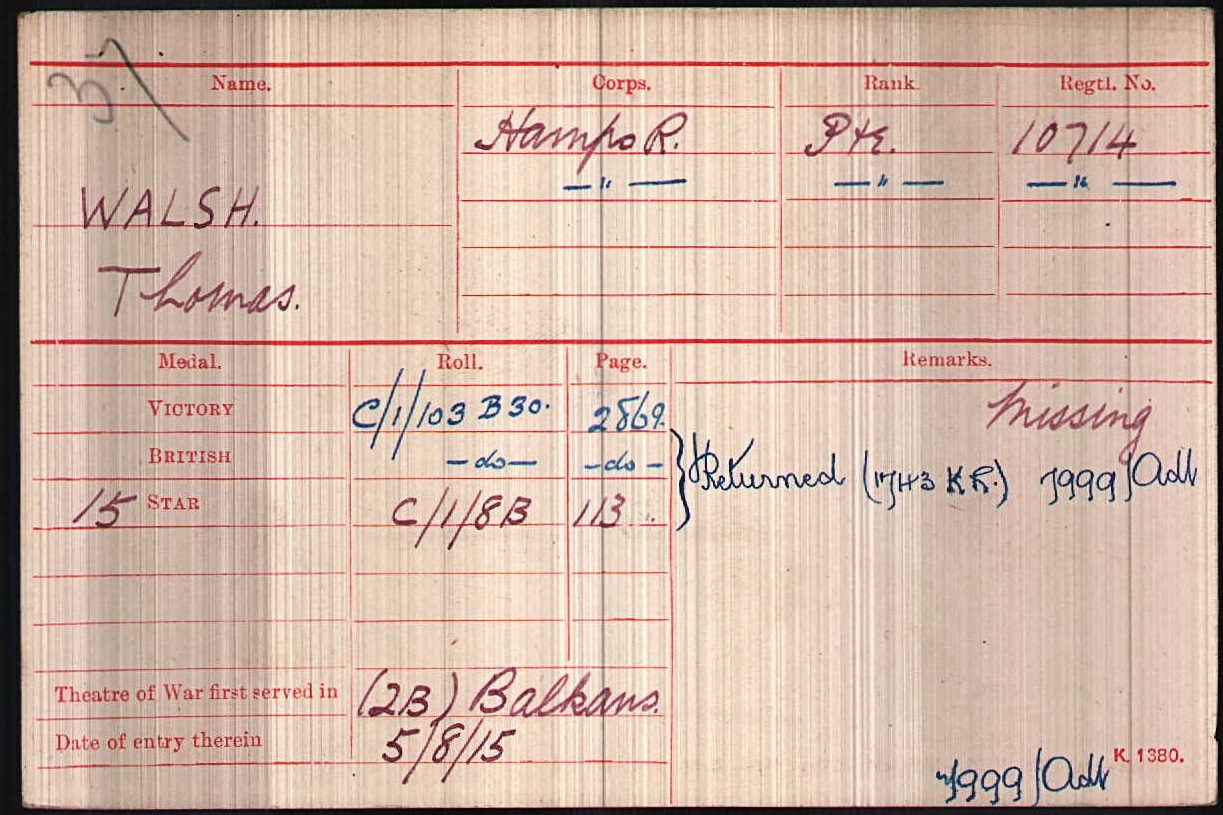 37
Name. Corps. Rank. Regtl. No.
Hamps R. Pte. 10714
—"— —"— —"—
WALSH.
Thomas.
Medal. Roll. Page. Remarks.
Missing
VICTORY C/1/103 B30. 2869.
BRITISH —do— —do—
Returned (1743 K.R.) 7999/Adt
15 STAR C/1/8B 113
Theatre of War first served in (2B) Balkans.
Date of entry therein 5/8/15
K. 1380.
7999/Adt